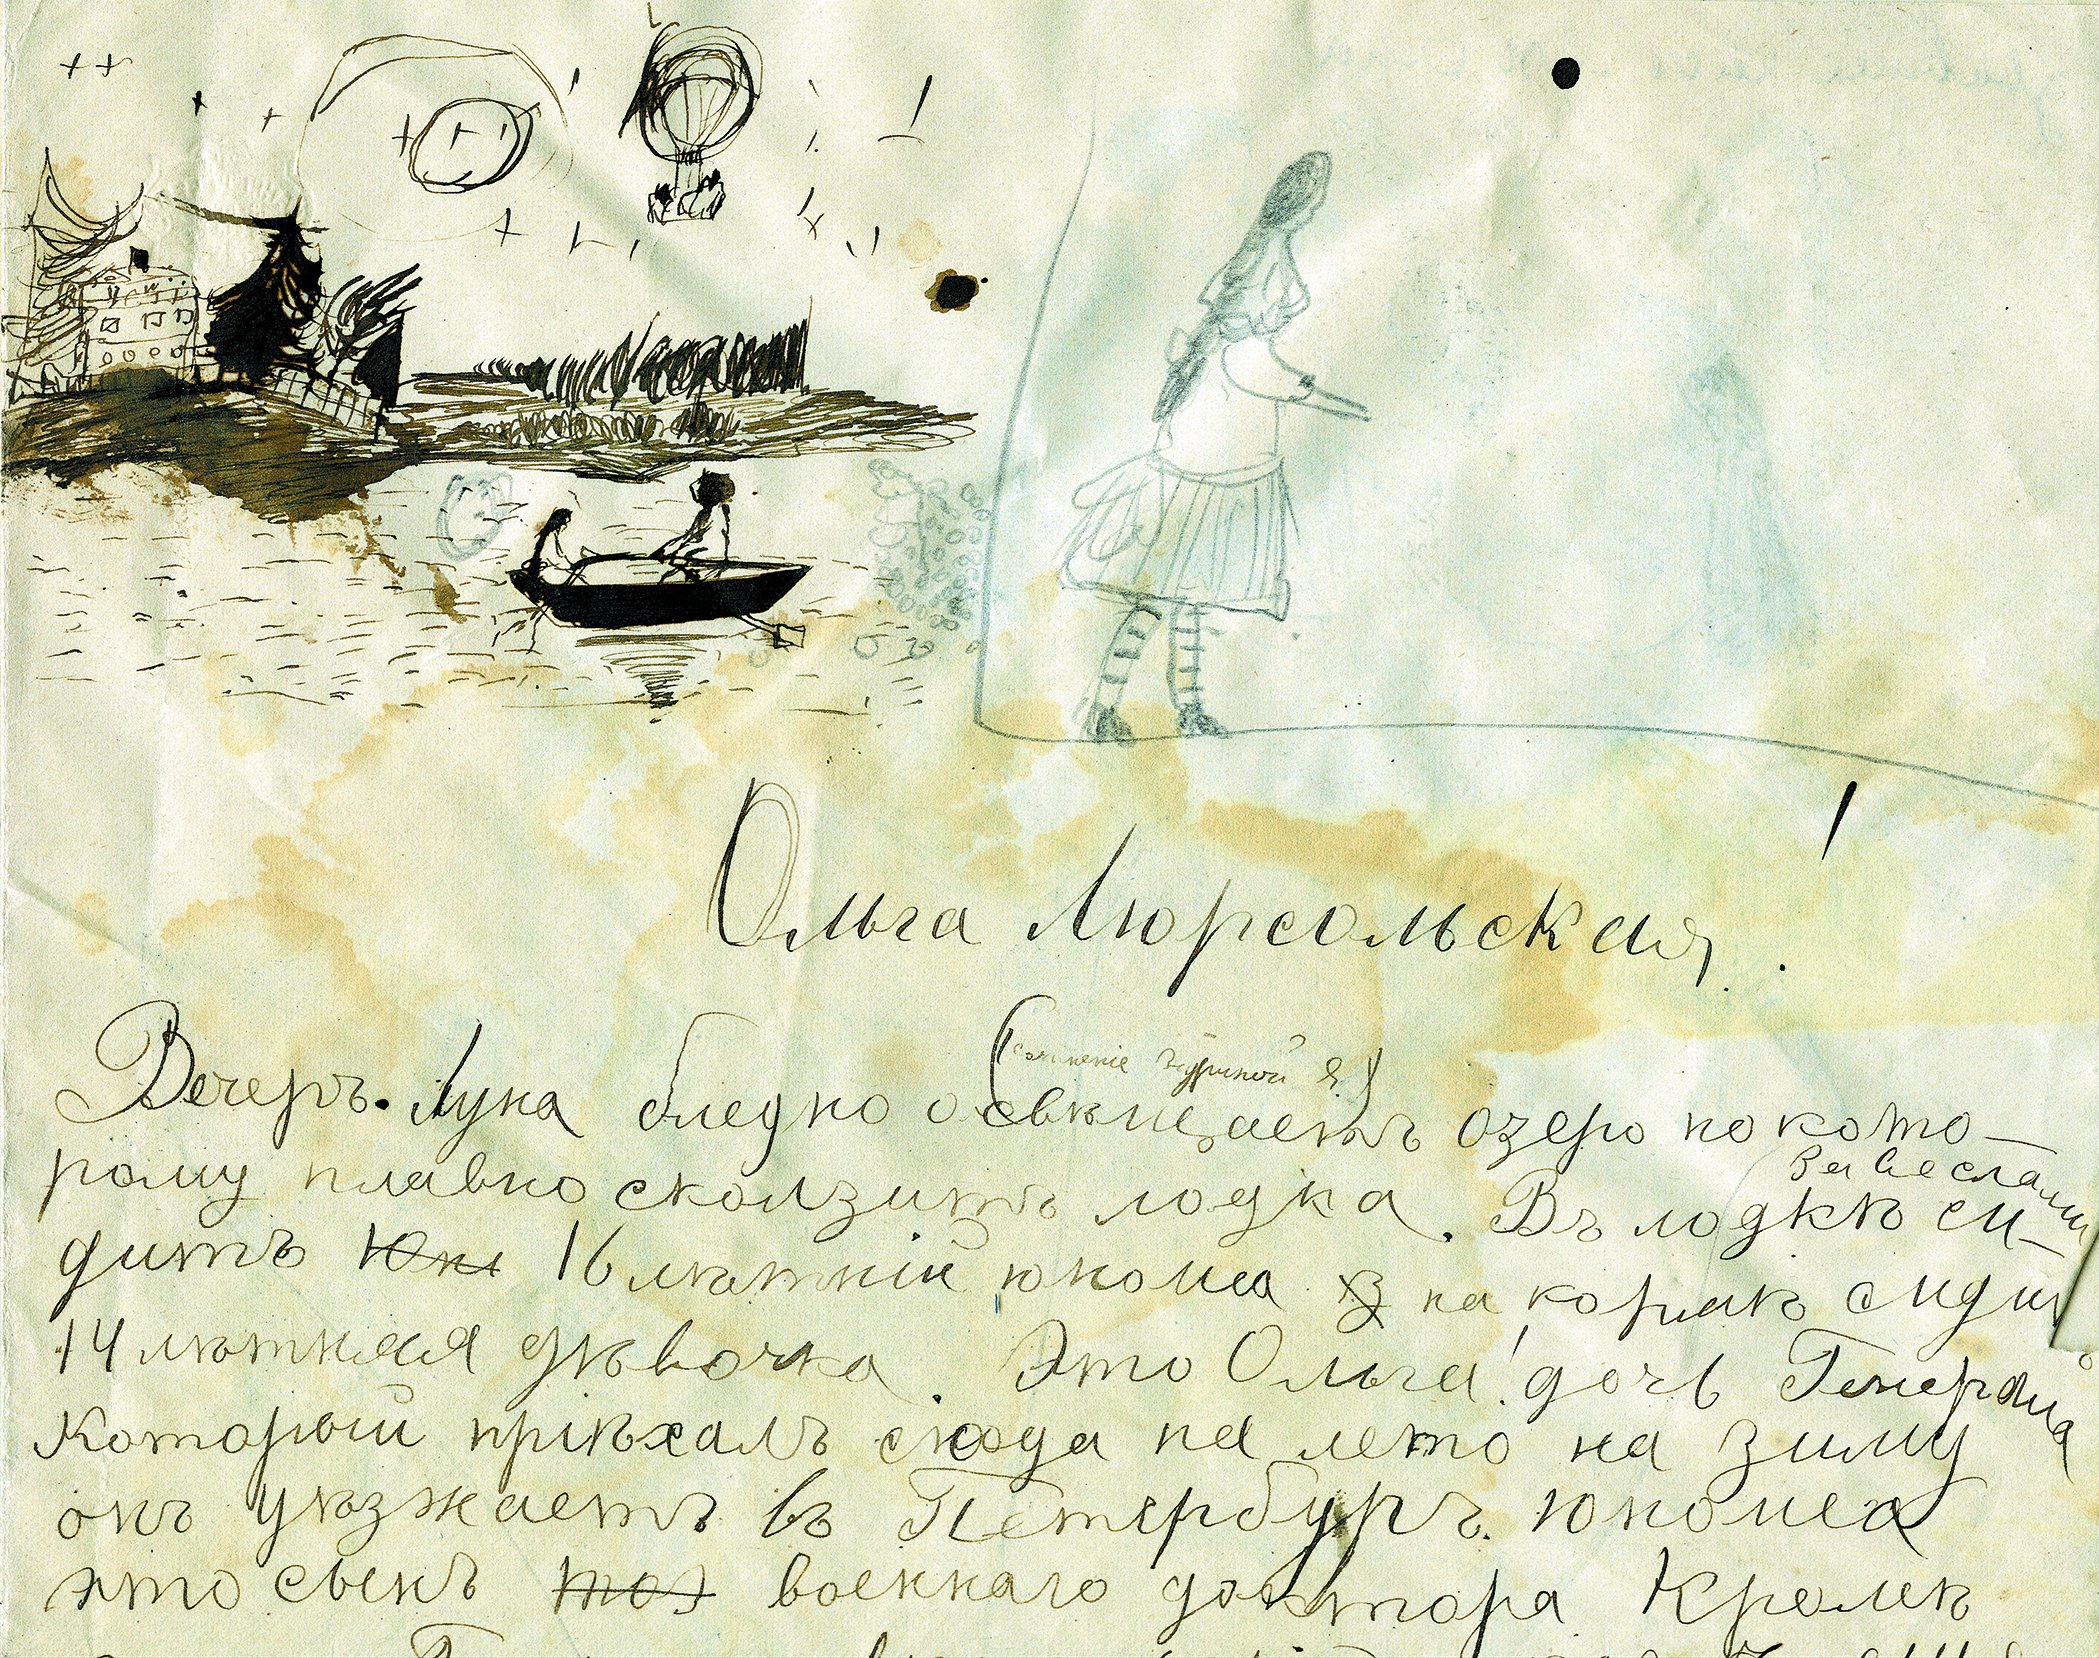 Ольга Люрсольская.
(Сочиненіе Э)
Вечеръ. Луна бледно освѣщаетъ озеро по кото-
рому плавно скользитъ лодка. Въ лодкѣ за веслами си-
дитъ 16 лѣтній юноша на кормѣ сидит
14 лѣтняя дѣвочка. Это Ольга! дочь Генерала
который пріѣхалъ сюда на лето на зиму
онъ уѣзжаетъ въ Петербургъ. юноша
это сынъ военнаго доктора